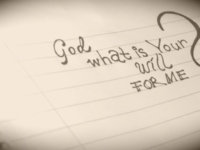 God
what is Your
will
FOR ME
?